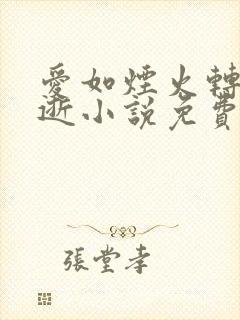 愛如煙火轉
逝小說免費
張堂孝